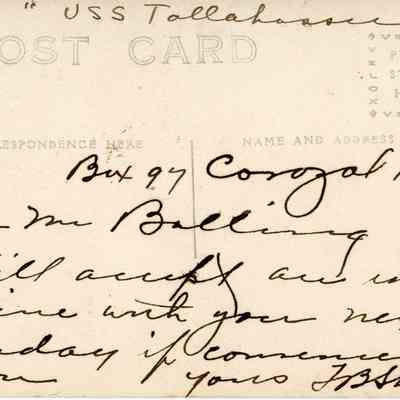 " USS Tallahassee
POST CARD
RESPONDENCE HERE
NAME AND ADDRESS
Box 97 Corozal
Mr Balling
ill accept an in
ine with you ne
day if convenie
yours